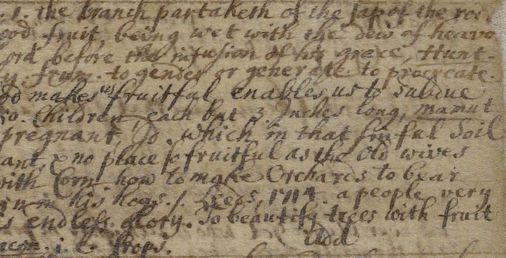 the branch partaketh of the sap of the
good fruit, being wet with the dew of heave
before the infusion of his grace, Hunt-
to gender or generate to procreate.
makes us fruitful, enables us to subdue
50. children each but 3 inches long, mamut
pregnant, which in that sinful soil
ant & no place so fruitful as the Old wives
with Corn. how to make Orchards to bear
as hogs. /. Trees, 1714. a people very
endless glory. To beautify trees with fruit
i. e. props.